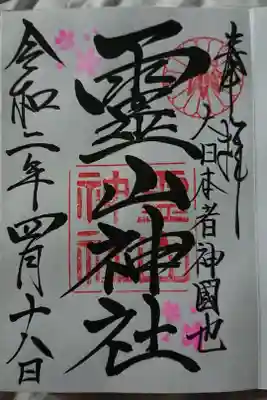 奉拝
大日本者神國也
靈山神社
令和二年四月十八日